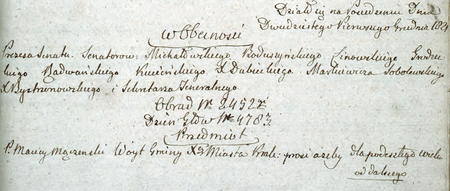 Działo się na Posiedzeniu Dnia
Dwudziestego Pierwszego Grudnia 182
w Obecności
Prezesa Senatu Senatorów: Michałowskiego Hoduszyńskiego Linowskiego Grodzickiego
Radwańskiego Kucieńskiego X Dubieckiego Markiewicza Sobolewskiego
X Bystrzonowskiego i Sekretarza Jeneralnego
Obrad Nr 2452
Dzien: Głów Nr 4783
Przedmiot
P. Maciej Mączenski Wóyt Gminy X Miasta prosi azeby dla podeszłego wieku
od dalszego